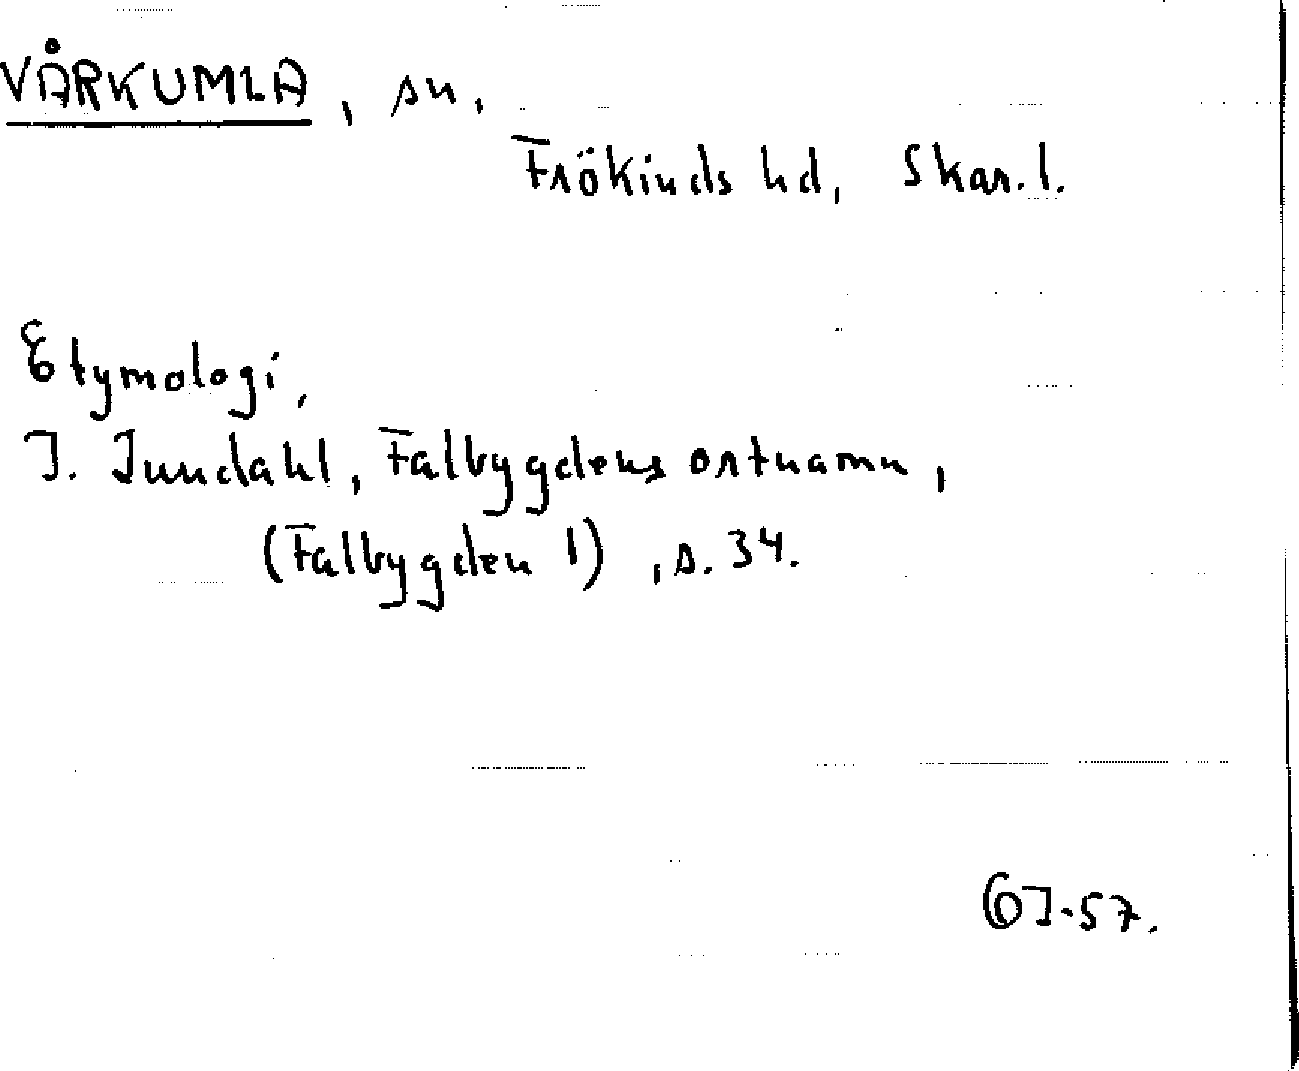 VÅRKUMLA, sn,
Frökinds hd, Skar. l.
Etymologi,
J. Jundahl, Falbygdens ortnamn,
(Falbygden 1), s. 34.
GJ-57.